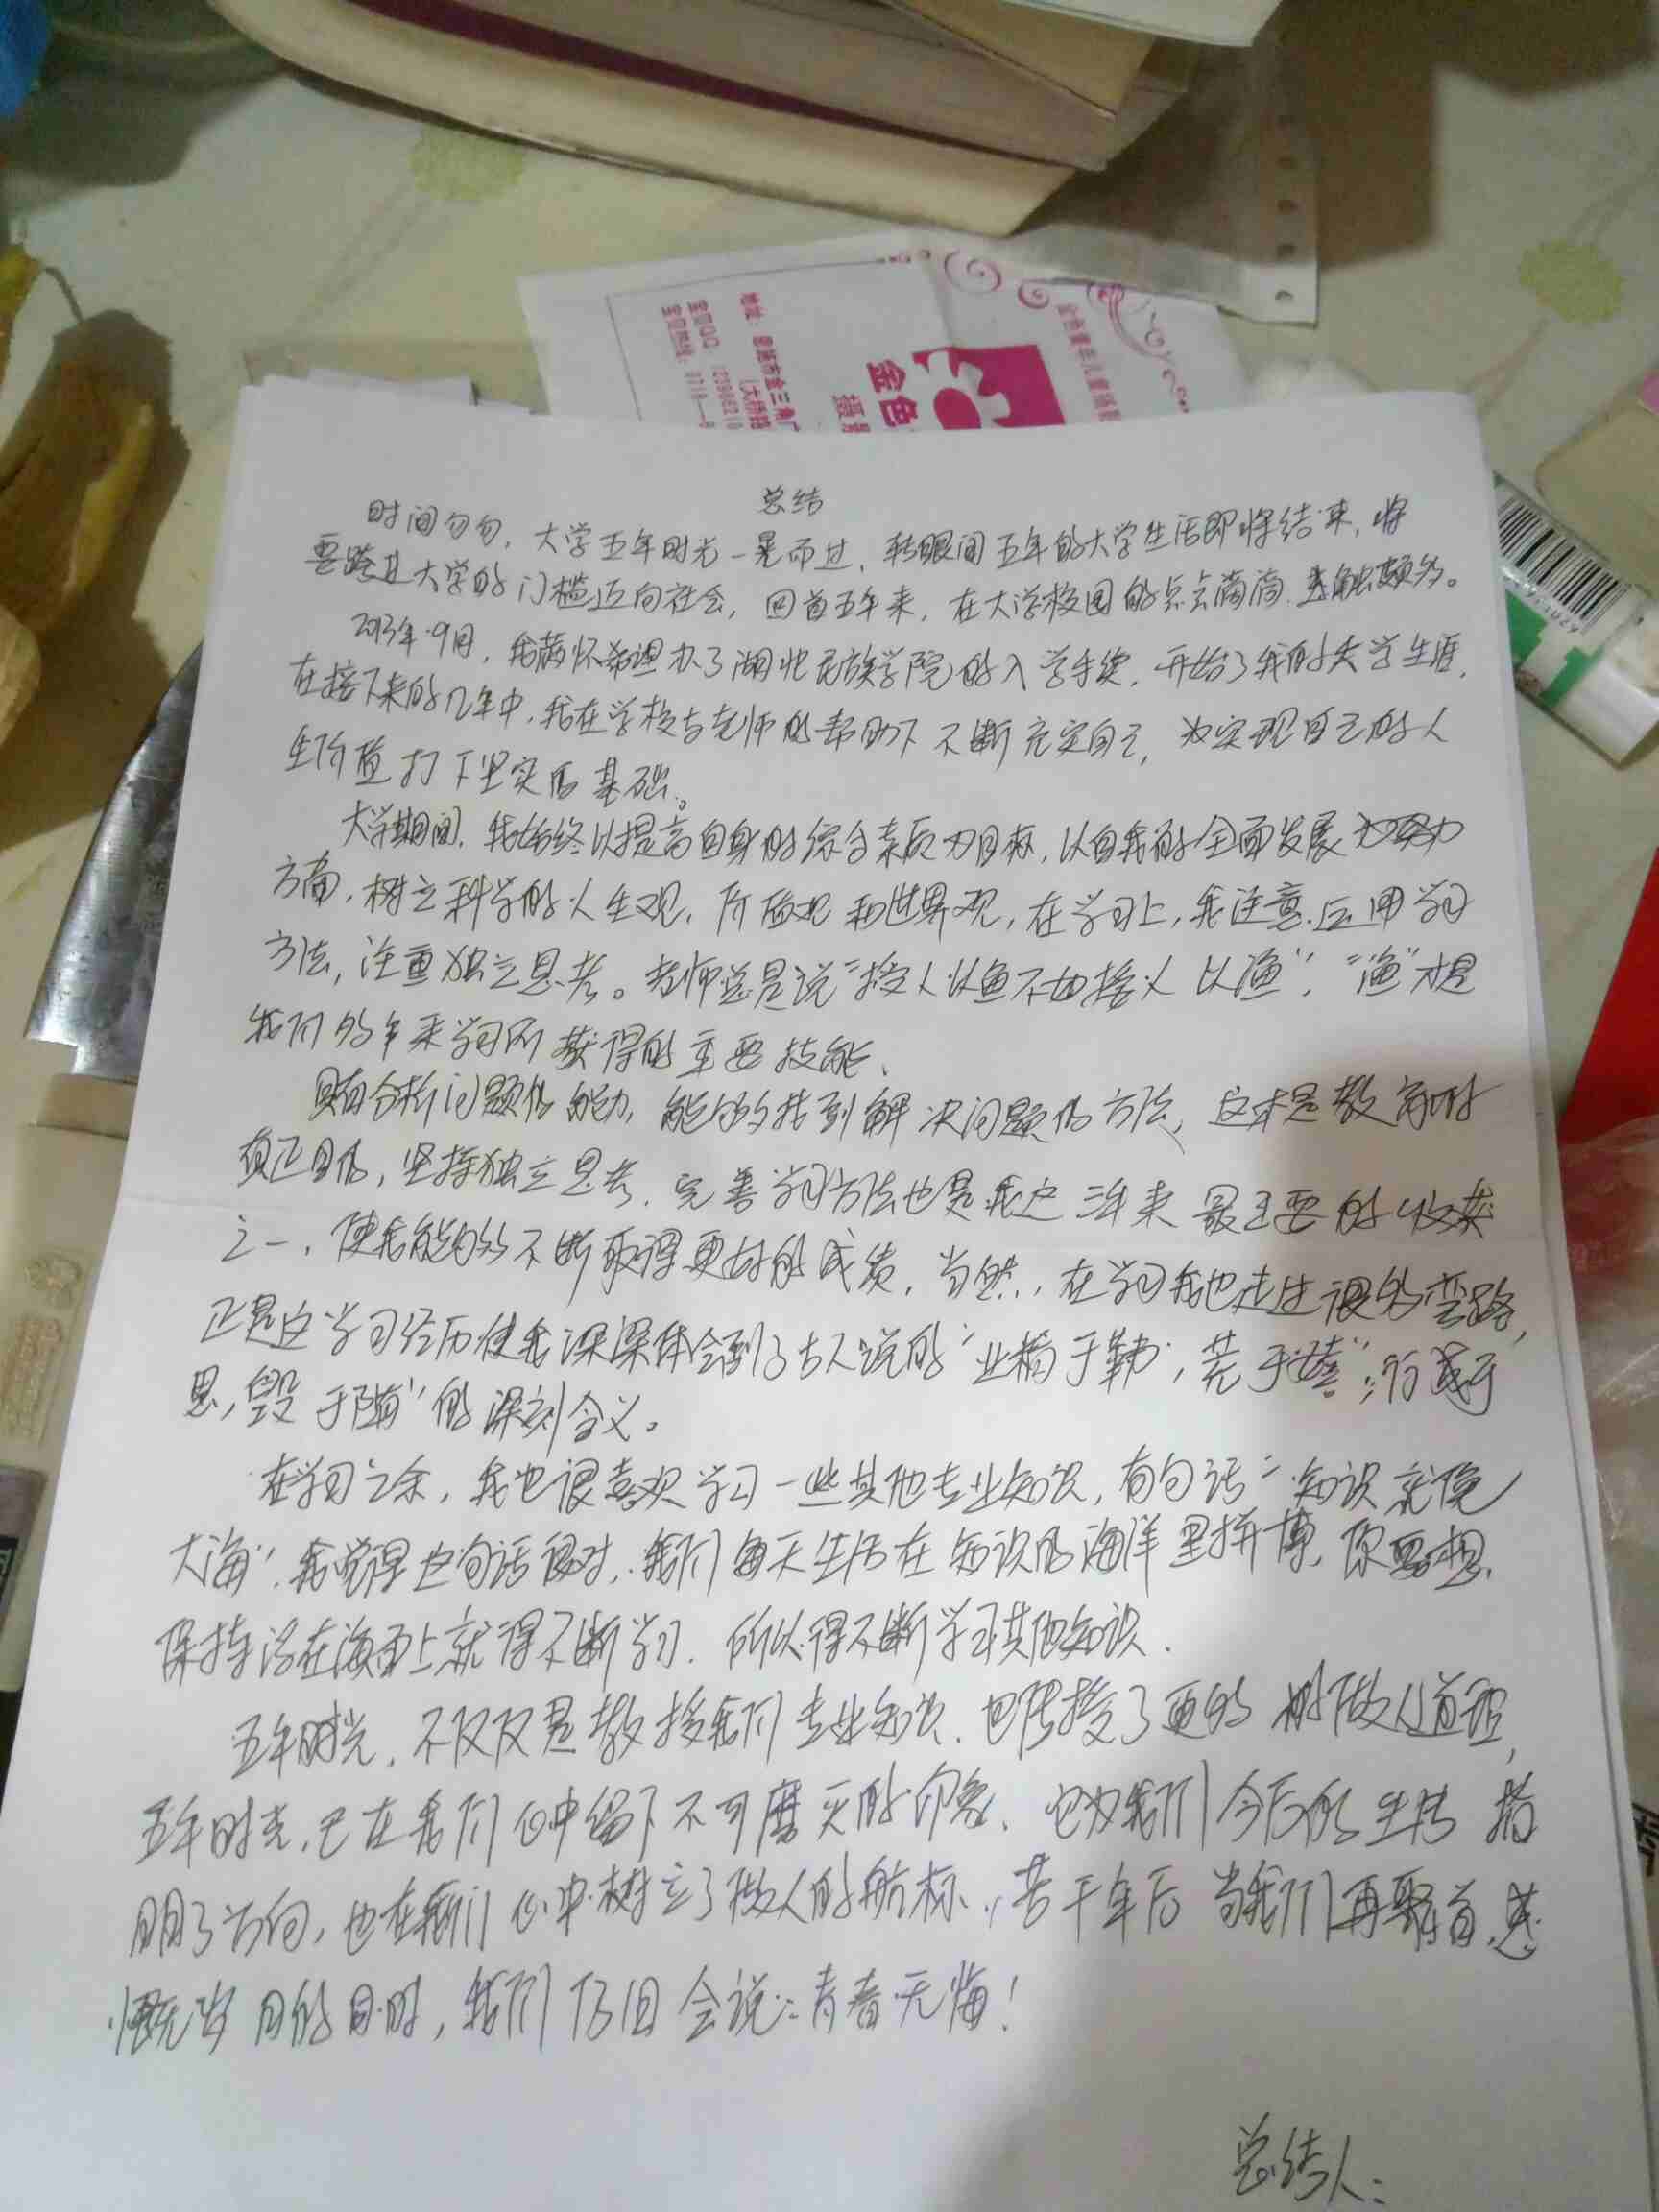 金色童年儿童摄影
金色
摄影
地址：恩施市金三角广
（大桥路
宝贝QQ：
宝贝热线：0718—8
总结
时间匆匆，大学五年时光一晃而过，转眼间五年的大学生活即将结束，将
要跨过大学的门槛迈向社会，回首五年来，在大学校园的点点滴滴，感触颇多。
2013年9月，我满怀希望办了湖北民族学院的入学手续，开始了我的大学生涯，
在接下来的几年中，我在学校与老师的帮助下不断充实自己，为实现自己的人
生价值打下坚实的基础。
大学期间，我始终以提高自身的综合素质为目标，以自我的全面发展为努力
方向，树立科学的人生观，价值观和世界观，在学习上，我注意应用学习
方法，注重独立思考。老师总是说“授人以鱼不如授人以渔”，“渔”才是
我们多年来学习所获得的重要技能。
具有分析问题的能力，能够找到解决问题的方法，这才是教育的
真正目的，坚持独立思考，完善学习方法也是我这三年来最重要的收获
之一，使我能够不断取得更好的成绩，当然，在学习我也走过很多弯路，
正是这学习经历使我深深体会到了古人说的“业精于勤，荒于嬉”；行成于
思，毁于随”的深刻含义。
在学习之余，我也很喜欢学习一些其他专业知识，有句话“知识就像
大海”，我觉得这句话很对，我们每天生活在知识的海洋里拼搏，你要想
保持浮在海面上就得不断学习，所以得不断学习其他知识。
五年时光，不仅仅是教授我们专业知识，也传授了更多的做人道理，
五年时光，已在我们心中留下不可磨灭的印象，它为我们今后的生活指
明了方向，也在我们心中树立了做人的航标，若干年后当我们再聚首，感
慨岁月的同时，我们仍旧会说：青春无悔！
总结人：